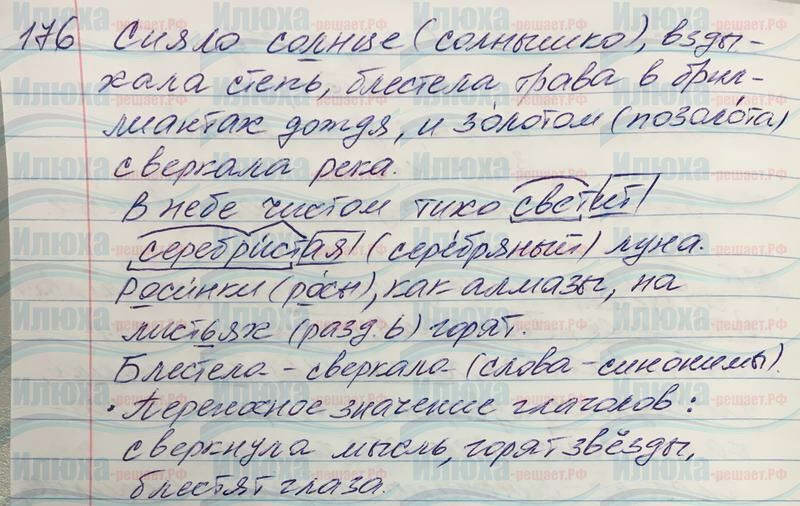 176 Сияло солнце (солнышко), взды-
хала степь, блестела трава в брил-
лиантах дождя, и золотом (позолота)
сверкала река.
В небе чистом тихо светит
серебристая (серебряный) луна.
Росинки (росы), как алмазы, на
листьях (разд. ь) горят.
Блестела - сверкала (слова - синонимы).
Переносное значение глаголов:
сверкнула мысль, горят звёзды,
блестят глаза.